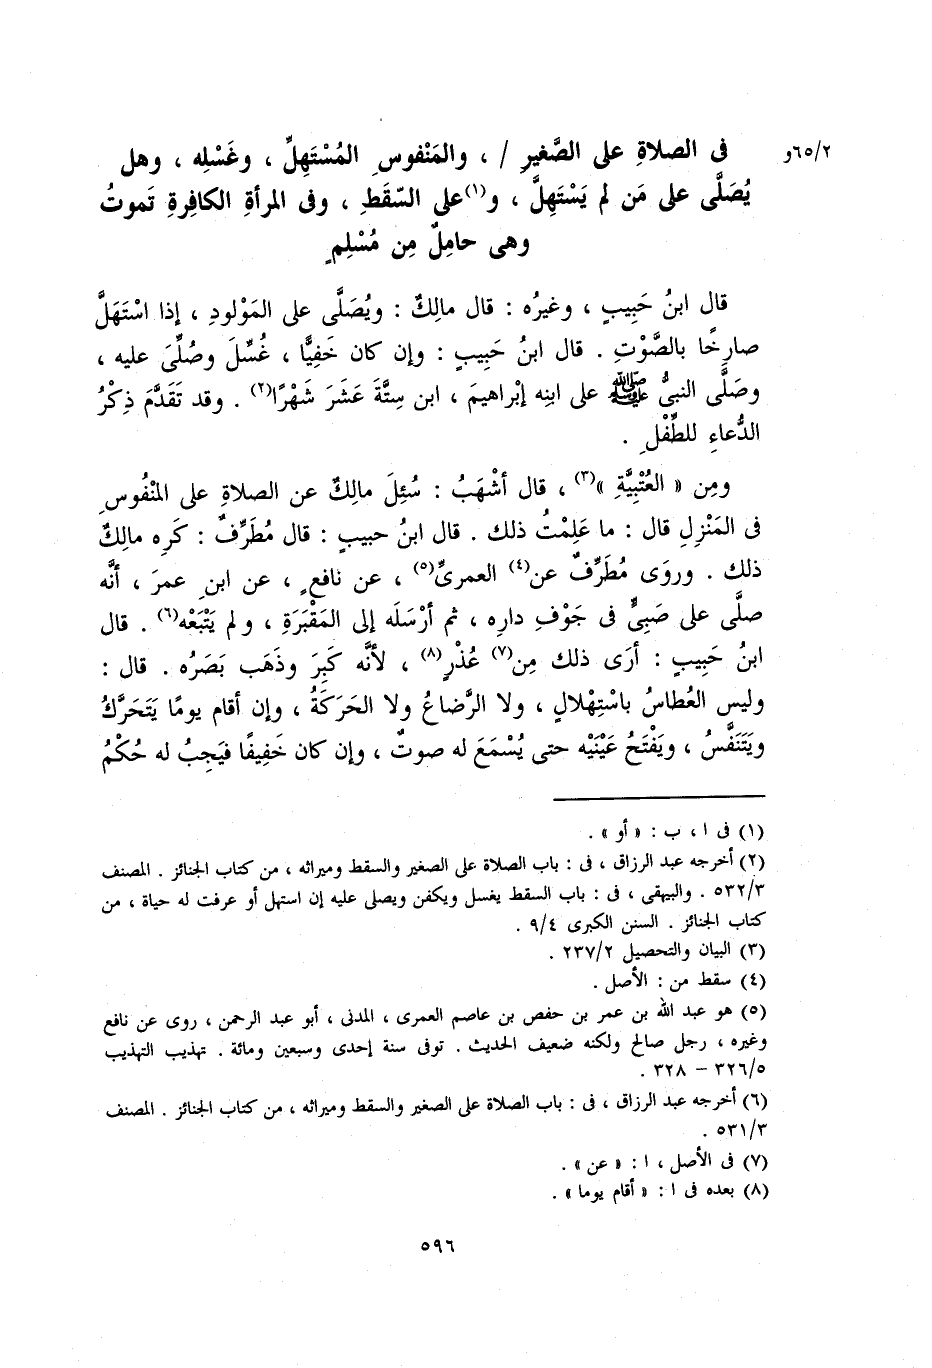 ٢/٦٥و
فى الصلاةِ على الصَّغيرِ / ، والمَنْفوسِ المُسْتَهِلِّ ، وغَسْلِه ، وهل
يُصَلَّى على مَن لم يَسْتَهِلَّ ، و(١)على السّقَطِ ، وفى المرأةِ الكافِرةِ تَموتُ
وهى حامِلٌ مِن مُسْلِمٍ
قال ابنُ حَبِيبٍ ، وغيرُه : قال مالِكٌ : ويُصَلَّى على المَوْلودِ ، إذا اسْتَهَلَّ
صارِخًا بالصَّوْتِ . قال ابنُ حَبِيبٍ : وإن كان خَفِيًّا ، غُسِّلَ وصُلِّىَ عليه ،
وصَلَّى النبىُّ ﷺ على ابنِه إبْراهيمَ ، ابن سِتَّةَ عَشَرَ شَهْرًا(٢) . وقد تَقَدَّمَ ذِكْرُ
الدُّعاءِ للطِّفْلِ .
ومِن « العُتْبِيَّةِ »(٣) ، قال أشْهَبُ : سُئِلَ مالِكٌ عن الصلاةِ على المنْفُوسِ
فى المَنْزِلِ قال : ما عَلِمْتُ ذلك . قال ابنُ حبيبٍ : قال مُطَرِّفٌ : كَرِه مالِكٌ
ذلك . وروَى مُطَرِّفٌ عن(٤) العمرىِّ(٥) ، عن نافعٍ ، عن ابنِ عمرَ ، أنَّه
صلَّى على صَبِىٍّ فى جَوْفِ دارِه ، ثم أرْسَلَه إلى المَقْبَرَةِ ، ولم يَتْبَعْه(٦) . قال
ابنُ حَبِيبٍ : أرَى ذلك مِن(٧) عُذْرٍ(٨) ، لأنَّه كَبِرَ وذَهَب بَصَرُه . قال :
وليس العُطاسُ باسْتِهْلالٍ ، ولا الرَّضاعُ ولا الحَرَكَةُ ، وإن أقام يومًا يَتَحَرَّكُ
ويَتَنَفَّسُ ، ويَفْتَحُ عَيْنَيْه حتى يُسْمَعَ له صوتٌ ، وإن كان خَفِيفًا فيَجِبُ له حُكْمُ
(١) فى ا ، ب : « أو » .
(٢) أخرجه عبد الرزاق ، فى : باب الصلاة على الصغير والسقط وميراثه ، من كتاب الجنائز . المصنف
٥٣٢/٣ . والبيهقى ، فى : باب السقط يغسل ويكفن ويصلى عليه إن استهل أو عرفت له حياة ، من
كتاب الجنائز . السنن الكبرى ٩/٤ .
(٣) البيان والتحصيل ٢٣٧/٢ .
(٤) سقط من : الأصل .
(٥) هو عبد الله بن عمر بن حفص بن عاصم العمرى ، المدنى ، أبو عبد الرحمن ، روى عن نافع
وغيره ، رجل صالح ولكنه ضعيف الحديث . توفى سنة إحدى وسبعين ومائة . تهذيب التهذيب
٣٢٦/٥ – ٣٢٨ .
(٦) أخرجه عبد الرزاق ، فى : باب الصلاة على الصغير والسقط وميراثه ، من كتاب الجنائز . المصنف
٥٣١/٣ .
(٧) فى الأصل ، ا : « عن » .
(٨) بعده فى ا : « أقام يوما » .
٥٩٦